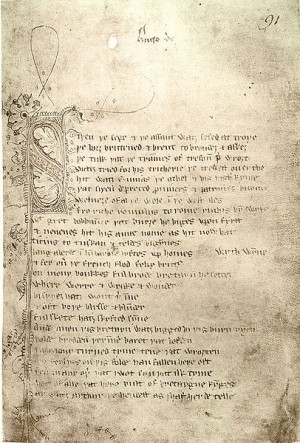 91
Siþen þe sege & þe assaut watz sesed at troye
þe borȝ brittened & brent to brondeȝ & askez
þe tulk þat þe trammes of tresoun þer wroȝt
Watz tried for his tricherie þe trewest on erthe
Hit watz ennias þe athel & his highe kynde
þat siþen depreced prouinces & patrounes bicome
Welneȝe of al þe wele in þe west iles
Fro riche romulus to rome ricchis hym swyþe
gret bobbaunce þat burȝe he biges vpon fyrst
& neuenes hit his aune nome as hit now hat
ticius to tuskan & teldes bigynnes
langaberde in lumbardie lyftes vp homes wyth wynne
& fer ouer þe french flod felix brutus
On mony bonkkes ful brode bretayn he settez
Where werre & wrake & wonder
Bi syþez hatz wont þerinne
& oft boþe blysse & blunder
ful skete hatz skyfted synne
Ande quen þis bretayn watz bigged bi þis burn rych
Bolde bredden þerinne baret þat lofden
In mony turned tyme tene þat wroȝten
Mo ferlyes on þis folde han fallen here oft
þen in any oþer þat I wot syn þat ilk tyme
Bot of alle þat here bult of bretaygne kynges
Ay watz arthur þe hendest as I haf herde telle